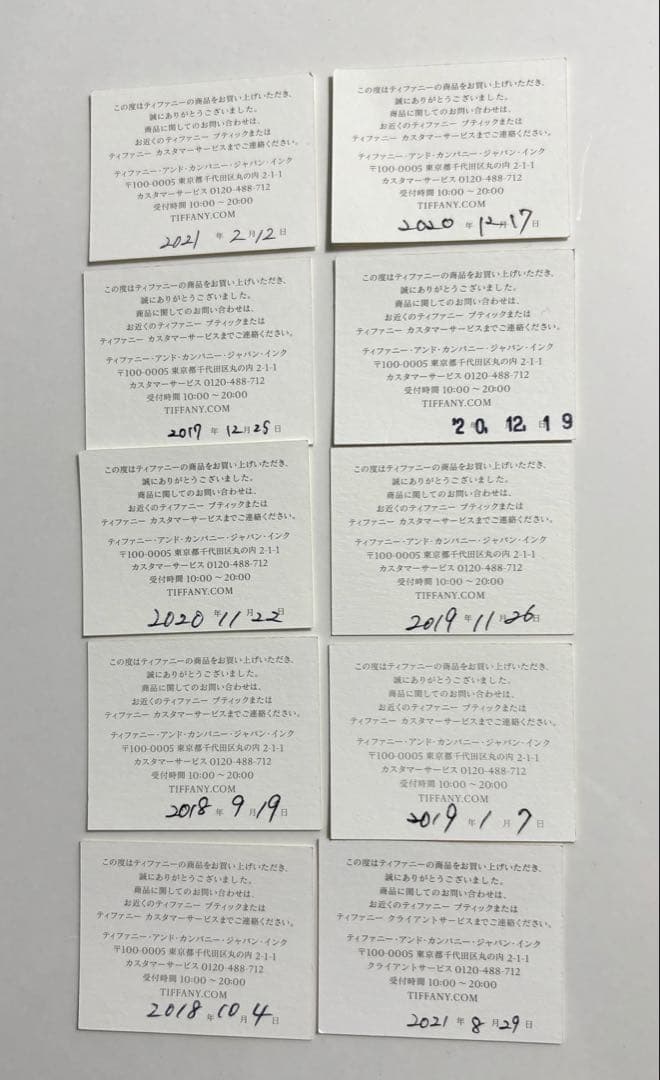 この度はティファニーの商品をお買い上げいただき、
誠にありがとうございました。
商品に関してのお問い合わせは、
お近くのティファニー ブティックまたは
ティファニー カスタマーサービスまでご連絡ください。
ティファニー・アンド・カンパニー・ジャパン・インク
〒100-0005 東京都千代田区丸の内 2-1-1
カスタマーサービス 0120-488-712
受付時間 10:00 ~ 20:00
TIFFANY.COM
2021 年 2月12日
この度はティファニーの商品をお買い上げいただき、
誠にありがとうございました。
商品に関してのお問い合わせは、
お近くのティファニー ブティックまたは
ティファニー カスタマーサービスまでご連絡ください。
ティファニー・アンド・カンパニー・ジャパン・インク
〒100-0005 東京都千代田区丸の内 2-1-1
カスタマーサービス 0120-488-712
受付時間 10:00 ~ 20:00
TIFFANY.COM
2020 年 12月17日
この度はティファニーの商品をお買い上げいただき、
誠にありがとうございました。
商品に関してのお問い合わせは、
お近くのティファニー ブティックまたは
ティファニー カスタマーサービスまでご連絡ください。
ティファニー・アンド・カンパニー・ジャパン・インク
〒100-0005 東京都千代田区丸の内 2-1-1
カスタマーサービス 0120-488-712
受付時間 10:00 ~ 20:00
TIFFANY.COM
2017 年 12月25日
この度はティファニーの商品をお買い上げいただき、
誠にありがとうございました。
商品に関してのお問い合わせは、
お近くのティファニー ブティックまたは
ティファニー カスタマーサービスまでご連絡ください。
ティファニー・アンド・カンパニー・ジャパン・インク
〒100-0005 東京都千代田区丸の内 2-1-1
カスタマーサービス 0120-488-712
受付時間 10:00 ~ 20:00
TIFFANY.COM
'20.12.19
この度はティファニーの商品をお買い上げいただき、
誠にありがとうございました。
商品に関してのお問い合わせは、
お近くのティファニー ブティックまたは
ティファニー カスタマーサービスまでご連絡ください。
ティファニー・アンド・カンパニー・ジャパン・インク
〒100-0005 東京都千代田区丸の内 2-1-1
カスタマーサービス 0120-488-712
受付時間 10:00 ~ 20:00
TIFFANY.COM
2020 年 11月22日
この度はティファニーの商品をお買い上げいただき、
誠にありがとうございました。
商品に関してのお問い合わせは、
お近くのティファニー ブティックまたは
ティファニー カスタマーサービスまでご連絡ください。
ティファニー・アンド・カンパニー・ジャパン・インク
〒100-0005 東京都千代田区丸の内 2-1-1
カスタマーサービス 0120-488-712
受付時間 10:00 ~ 20:00
TIFFANY.COM
2019 年 11月26日
この度はティファニーの商品をお買い上げいただき、
誠にありがとうございました。
商品に関してのお問い合わせは、
お近くのティファニー ブティックまたは
ティファニー カスタマーサービスまでご連絡ください。
ティファニー・アンド・カンパニー・ジャパン・インク
〒100-0005 東京都千代田区丸の内 2-1-1
カスタマーサービス 0120-488-712
受付時間 10:00 ~ 20:00
TIFFANY.COM
2018 年 9月19日
この度はティファニーの商品をお買い上げいただき、
誠にありがとうございました。
商品に関してのお問い合わせは、
お近くのティファニー ブティックまたは
ティファニー カスタマーサービスまでご連絡ください。
ティファニー・アンド・カンパニー・ジャパン・インク
〒100-0005 東京都千代田区丸の内 2-1-1
カスタマーサービス 0120-488-712
受付時間 10:00 ~ 20:00
TIFFANY.COM
2019 年 1月7日
この度はティファニーの商品をお買い上げいただき、
誠にありがとうございました。
商品に関してのお問い合わせは、
お近くのティファニー ブティックまたは
ティファニー カスタマーサービスまでご連絡ください。
ティファニー・アンド・カンパニー・ジャパン・インク
〒100-0005 東京都千代田区丸の内 2-1-1
カスタマーサービス 0120-488-712
受付時間 10:00 ~ 20:00
TIFFANY.COM
2018 年 10月4日
この度はティファニーの商品をお買い上げいただき、
誠にありがとうございました。
商品に関してのお問い合わせは、
お近くのティファニー ブティックまたは
ティファニー クライアントサービスまでご連絡ください。
ティファニー・アンド・カンパニー・ジャパン・インク
〒100-0005 東京都千代田区丸の内 2-1-1
クライアントサービス 0120-488-712
受付時間 10:00 ~ 20:00
TIFFANY.COM
2021 年 8月29日